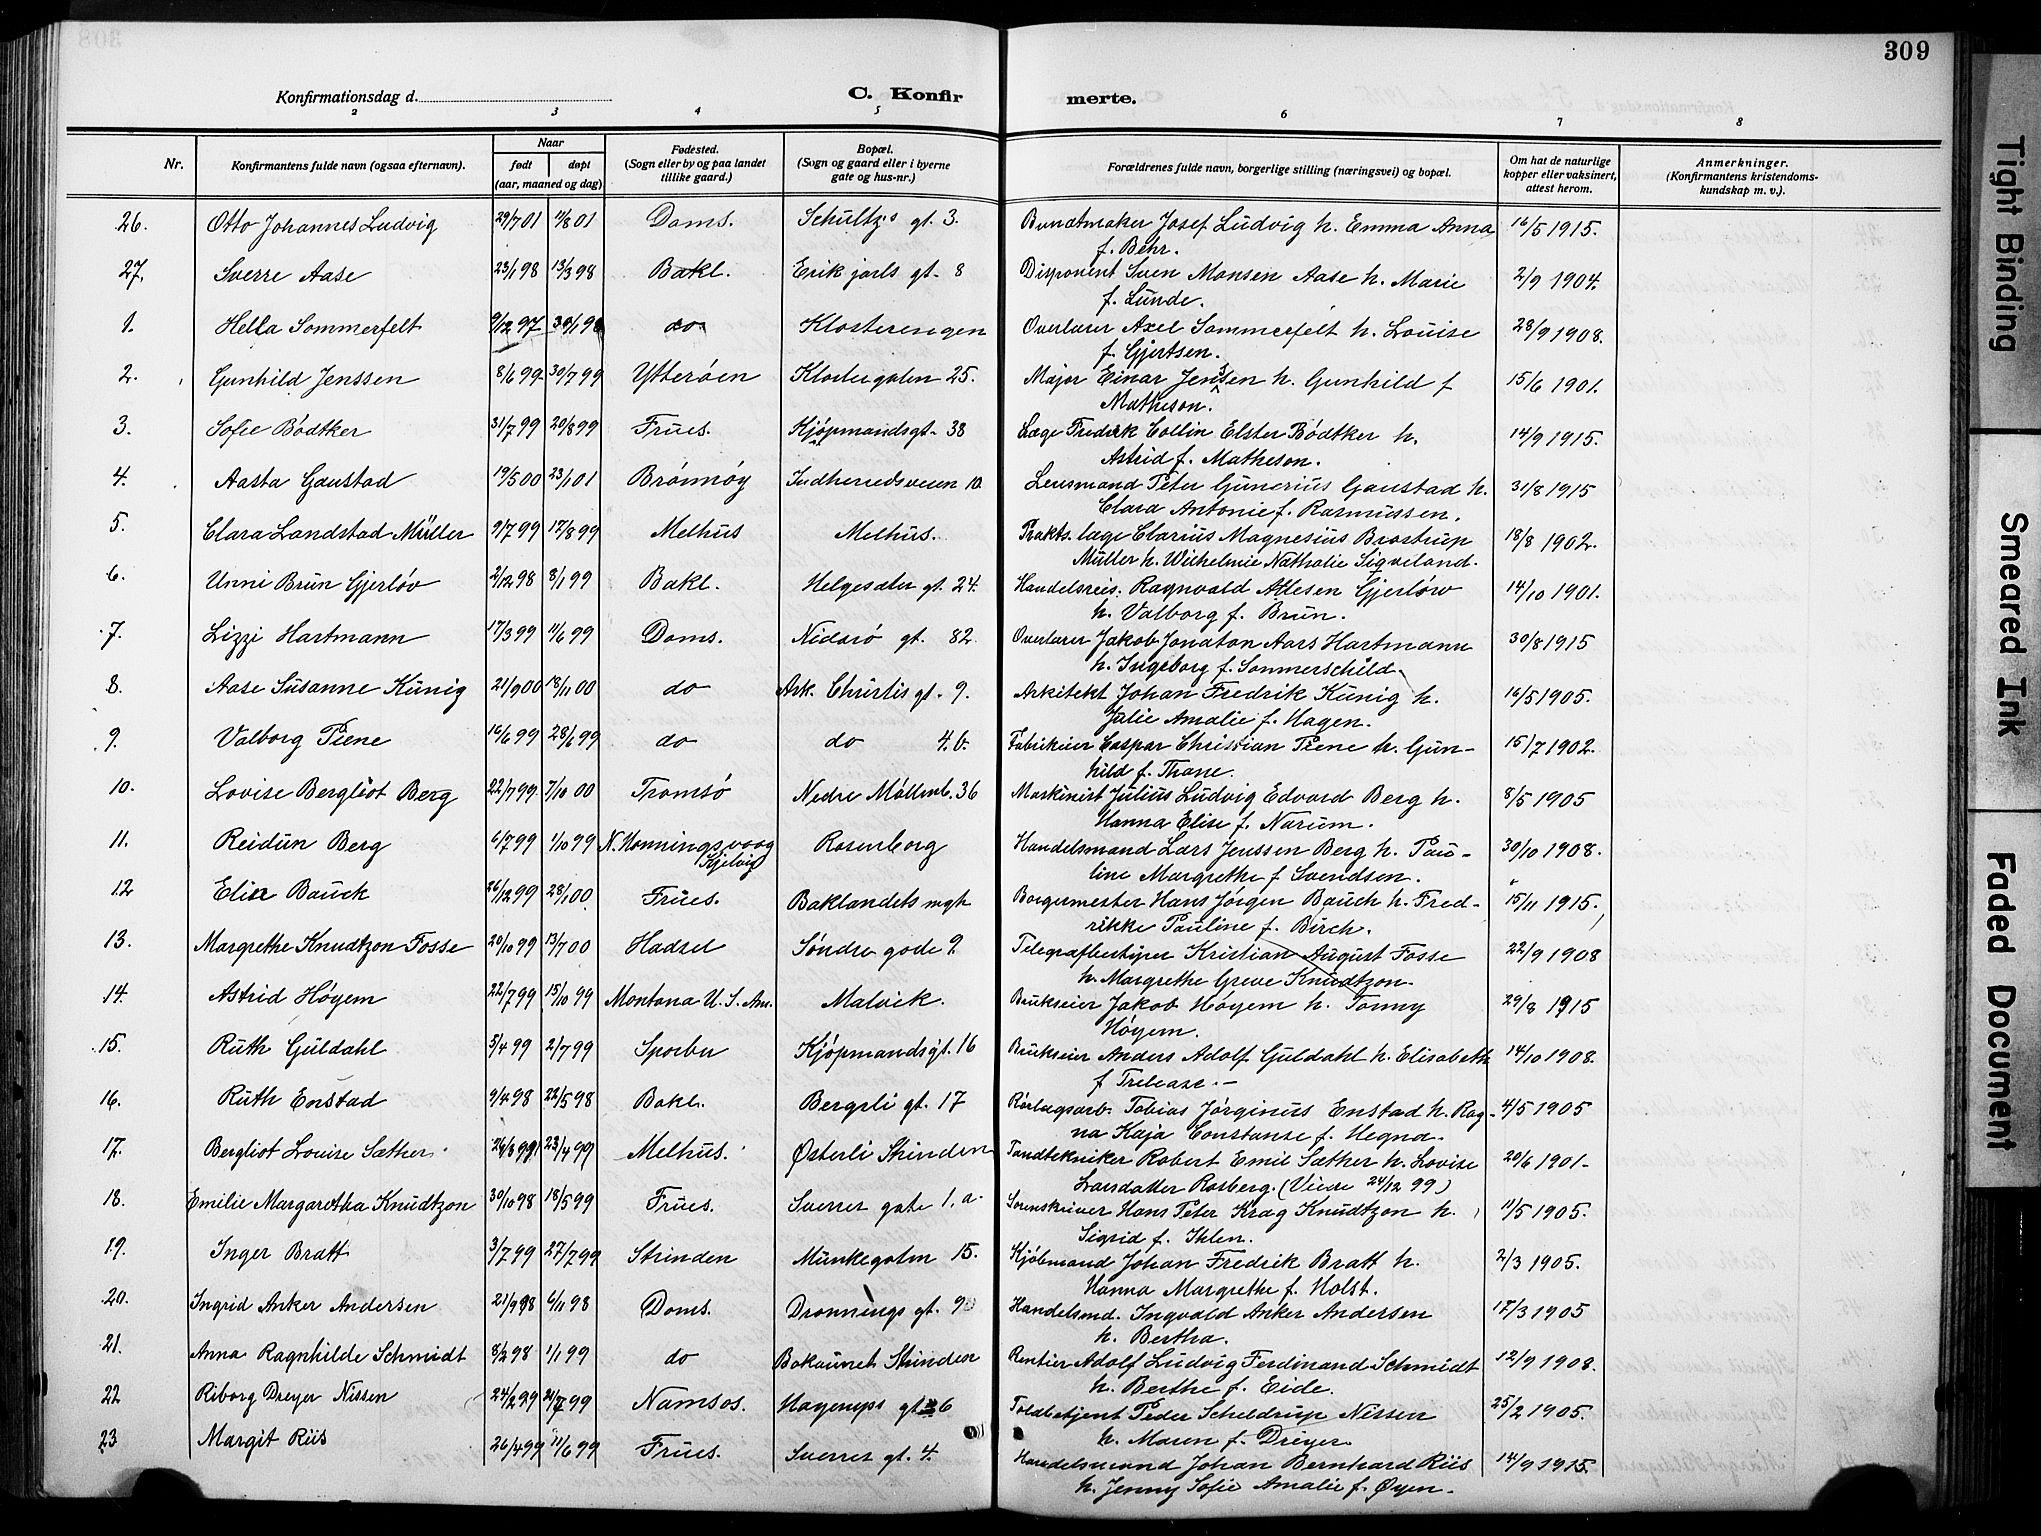 309
Konfirmationsdag d.
C. Konfir
merte.
2 3 4 5 6 7 8
Nr.
Konfirmantens fulde navn (ogsaa efternavn).
Naar
født døpt
(aar, maaned og dag)
Fødested.
(Sogn eller by og paa landet
tillike gaard.)
Bopæl.
(Sogn og gaard eller i byerne
gate og hus-nr.)
Forældrenes fulde navn, borgerlige stilling (næringsvei) og bopæl.
Om hat de naturlige
kopper eller vaksinert,
attest herom.
Anmerkninger.
(Konfirmantens kristendoms-
kundskap m. v.).
26. Otto Johannes Ludvig 29/7 01 11/8 01 Doms. Schultz's gt. 3. Bundtmaker Josef Ludvig h. Emma Anna 16/5 1915.
f. Behr.
27. Sverre Aase 23/1 98 13/3 98 Bakl. Erik jarls gt. 8 Disponent Sven Monsen Aase h. Marie 2/9 1904.
f. Lunde.
1. Hella Sommerfelt 9/12 97 do Klosterengen Overlærer Axel Sommerfelt h. Louise 28/9 1908.
f. Gjertsen.
2. Gunhild Jenssen 8/6 99 30/7 99 Ytterøen Klostergaten 25. Major Einar Jenssen h. Gunhild f 15/6 1901.
Matheson.
3. Sofie Bödtker 31/7 99 20/8 99 Frues. Kjøpmandsgt. 38 Læge Fredrik Collin Elster Bödtker h. 14/9 1915.
Astrid f. Matheson.
4. Aasta Gaustad 19/5 00 23/1 01 Brönnöy Indherredsveien 10. Lensmand Peter Gunerius Gaustad h. 31/8 1915
Clara Antonie f. Rasmussen.
5. Clara Landstad Müller 9/7 99 17/8 99 Melhus Melhus. Prakts. læge Clarius Magnesius Brostrup 18/8 1902.
Müller h. Wilhelmie Nathalie Sigveland.
6. Unni Brun Gjerløv 2/12 98 8/1 99 Bakl. Helgesæter gt. 24. Handelsreis. Ragnvald Gjerløw 14/10 1901.
h. Valborg f. Brun.
7. Lizzi Hartmann 17/3 99 11/6 99 Doms. Nidarö gt. 82. Overlærer Jakob Jonatan Aars Hartmann 30/8 1915
h. Ingeborg f. Sommerschild.
8. Aase Susanne Kunig 21/9 00 18/11 00 do Ark. Christis gt. 9. Arkitekt Johan Fredrik Kunig h. 16/5 1905.
Julie Amalie f. Hagen.
9. Valborg Piene 16/6 99 28/6 99 do do 4.b. Fabrikeier Caspar Christian Piene h. Gun-
15/7 1902.
hild f. Thane.
10. Lovise Bergliot Berg 22/7 99 7/10 00 Tromsö Nedre Möllenb. 36 Maskinist Julius Ludvig Edvard Berg h. 8/5 1905
Hanna Elise f. Narum.
11. Reidun Berg 6/7 99 1/10 99 N. Honningsvaag Rosenborg Handelsmand Lars Jenssen Berg h. Pau- 30/10 1908.
Kjelvig
line Margrethe f Svendsen.
12 Elise Bauck 26/12 99 28/1 00 Frues. Baklandets Borgermester Hans Jörgen Bauck h. Fred- 15/11 1915.
rikke Pauline f. Birch.
13. Margrethe Knudtzon Fosse 20/10 99 13/7 00 Hadsel Søndre gade 9. Telegrafbestyrer Kristian August Fosse 22/9 1908
h. Margrethe Greve Knudtzon.
14. Astrid Höyem 22/7 99 15/10 99 Montana U. S. Am. Malvik. Brukseier Jakob Höyem h. Tonny 29/8 1915
Höyem.
15. Ruth Guldahl 3/4 99 2/7 99 Sparbu Kjöpmandsgt. 16 Brukseier Anders Adolf Guldahl h. Elisabeth 14/10 1908.
f Trelease.-
16. Ruth Enstad 9/4 98 22/5 98 Bakl. Bergsli gt. 17 Rörlægsarb. Tobias Jörginus Enstad h. Rag- 4/5 1905
na Kaja Constanse f. Hegna.
17. Bergliot Louise Sæther 26/3 99 23/4 99 Melhus. Østerli Strinden Tandtekniker Robert Emil Sæther h. Lovise 20/6 1901.
Larsdatter Rosberg. (Viede 24/12 99)
18. Emilie Margaretha Knudtzon 30/10 98 18/5 99 Frues. Sverres gate 1.a. Sorenskriver Hans Peter Krag Knudtzon h. 11/5 1905.
Sigrid f. Ihlen.
19. Inger Bratt 3/7 99 27/7 99 Strinden Munkegaten 15. Kjöbmand Johan Fredrik Bratt h. 2/3 1905.
Hanna Margrethe f. Holst.
20. Ingrid Anker Andersen 21/9 98 6/11 98 Doms. Dronnings gt. Handelsmd. Ingvald Anker Andersen 17/3 1905
h. Bertha.
21. Anna Ragnhilde Schmidt 8/2 98 1/1 99 do Bakaunet Strinden Rentier Adolf Ludvig Ferdinand Schmidt 12/9 1908.
h. Berthe f. Eide.
22 Riborg Dreyer Nissen 24/2 99 99 Namsos. Hagerups gt. 6 Toldbetjent Peder Scheldrup Nissen 25/2 1905.
h. Maren f. Dreyer
23 Margit Riis 26/4 99 11/6 99 Frues. Sverres gt. 4. Handelsmand Johan Bernhard Riis 14/9 1915.
h. Jenny Sofie Amalie f. Øyen.
Tight Binding
Smeared Ink
Faded Document